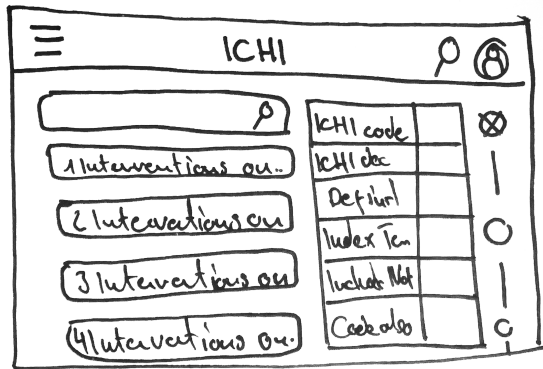 ICHI
1 Interventions on..
2 Interventions on
3 Interventions on
4 Interventions on.
ICHI code
ICHI dec
Definrl
Index Ten
Include Not
Code also